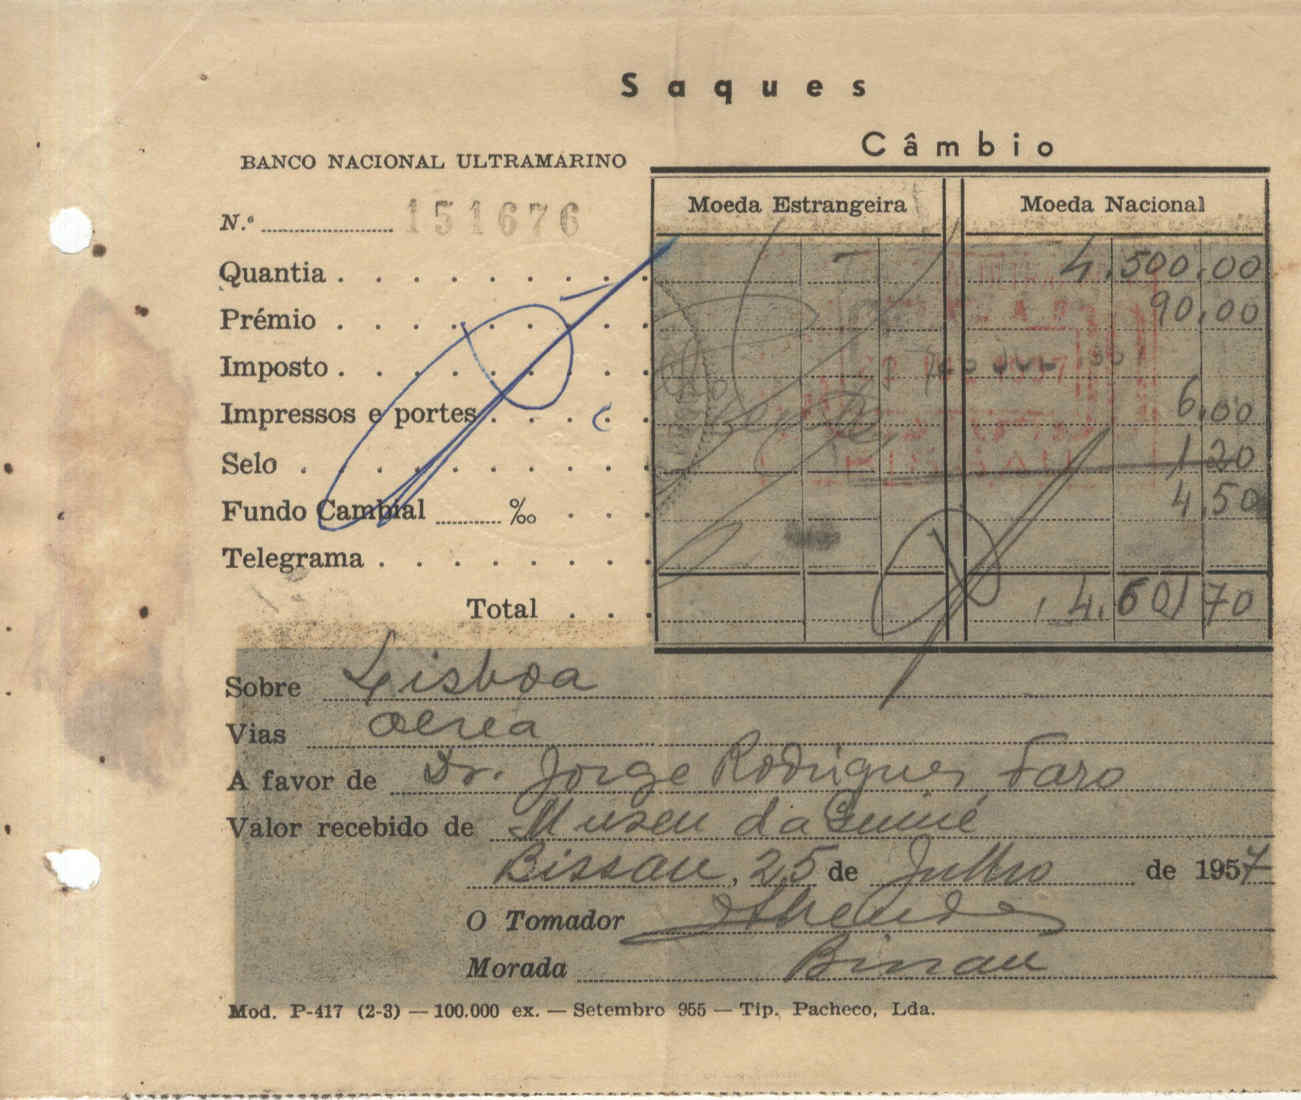 Saques
Câmbio
BANCO NACIONAL ULTRAMARINO
Moeda Estrangeira Moeda Nacional
N.º 151676
Quantia 4.500,00
Prémio 90,00
Imposto
Impressos e portes 6,00
Selo 1,20
Fundo Cambial ‰ 4,50
Telegrama
Total 4.601,70
Sobre Lisboa
Vias aerea
A favor de Dr. Jorge Rodrigues Faro
Valor recebido de Museu da Guiné
Bissau, 25 de Julho de 1957
O Tomador
Morada Bissau
Mod. P-417 (2-3) — 100.000 ex. — Setembro 955 — Tip. Pacheco, Lda.